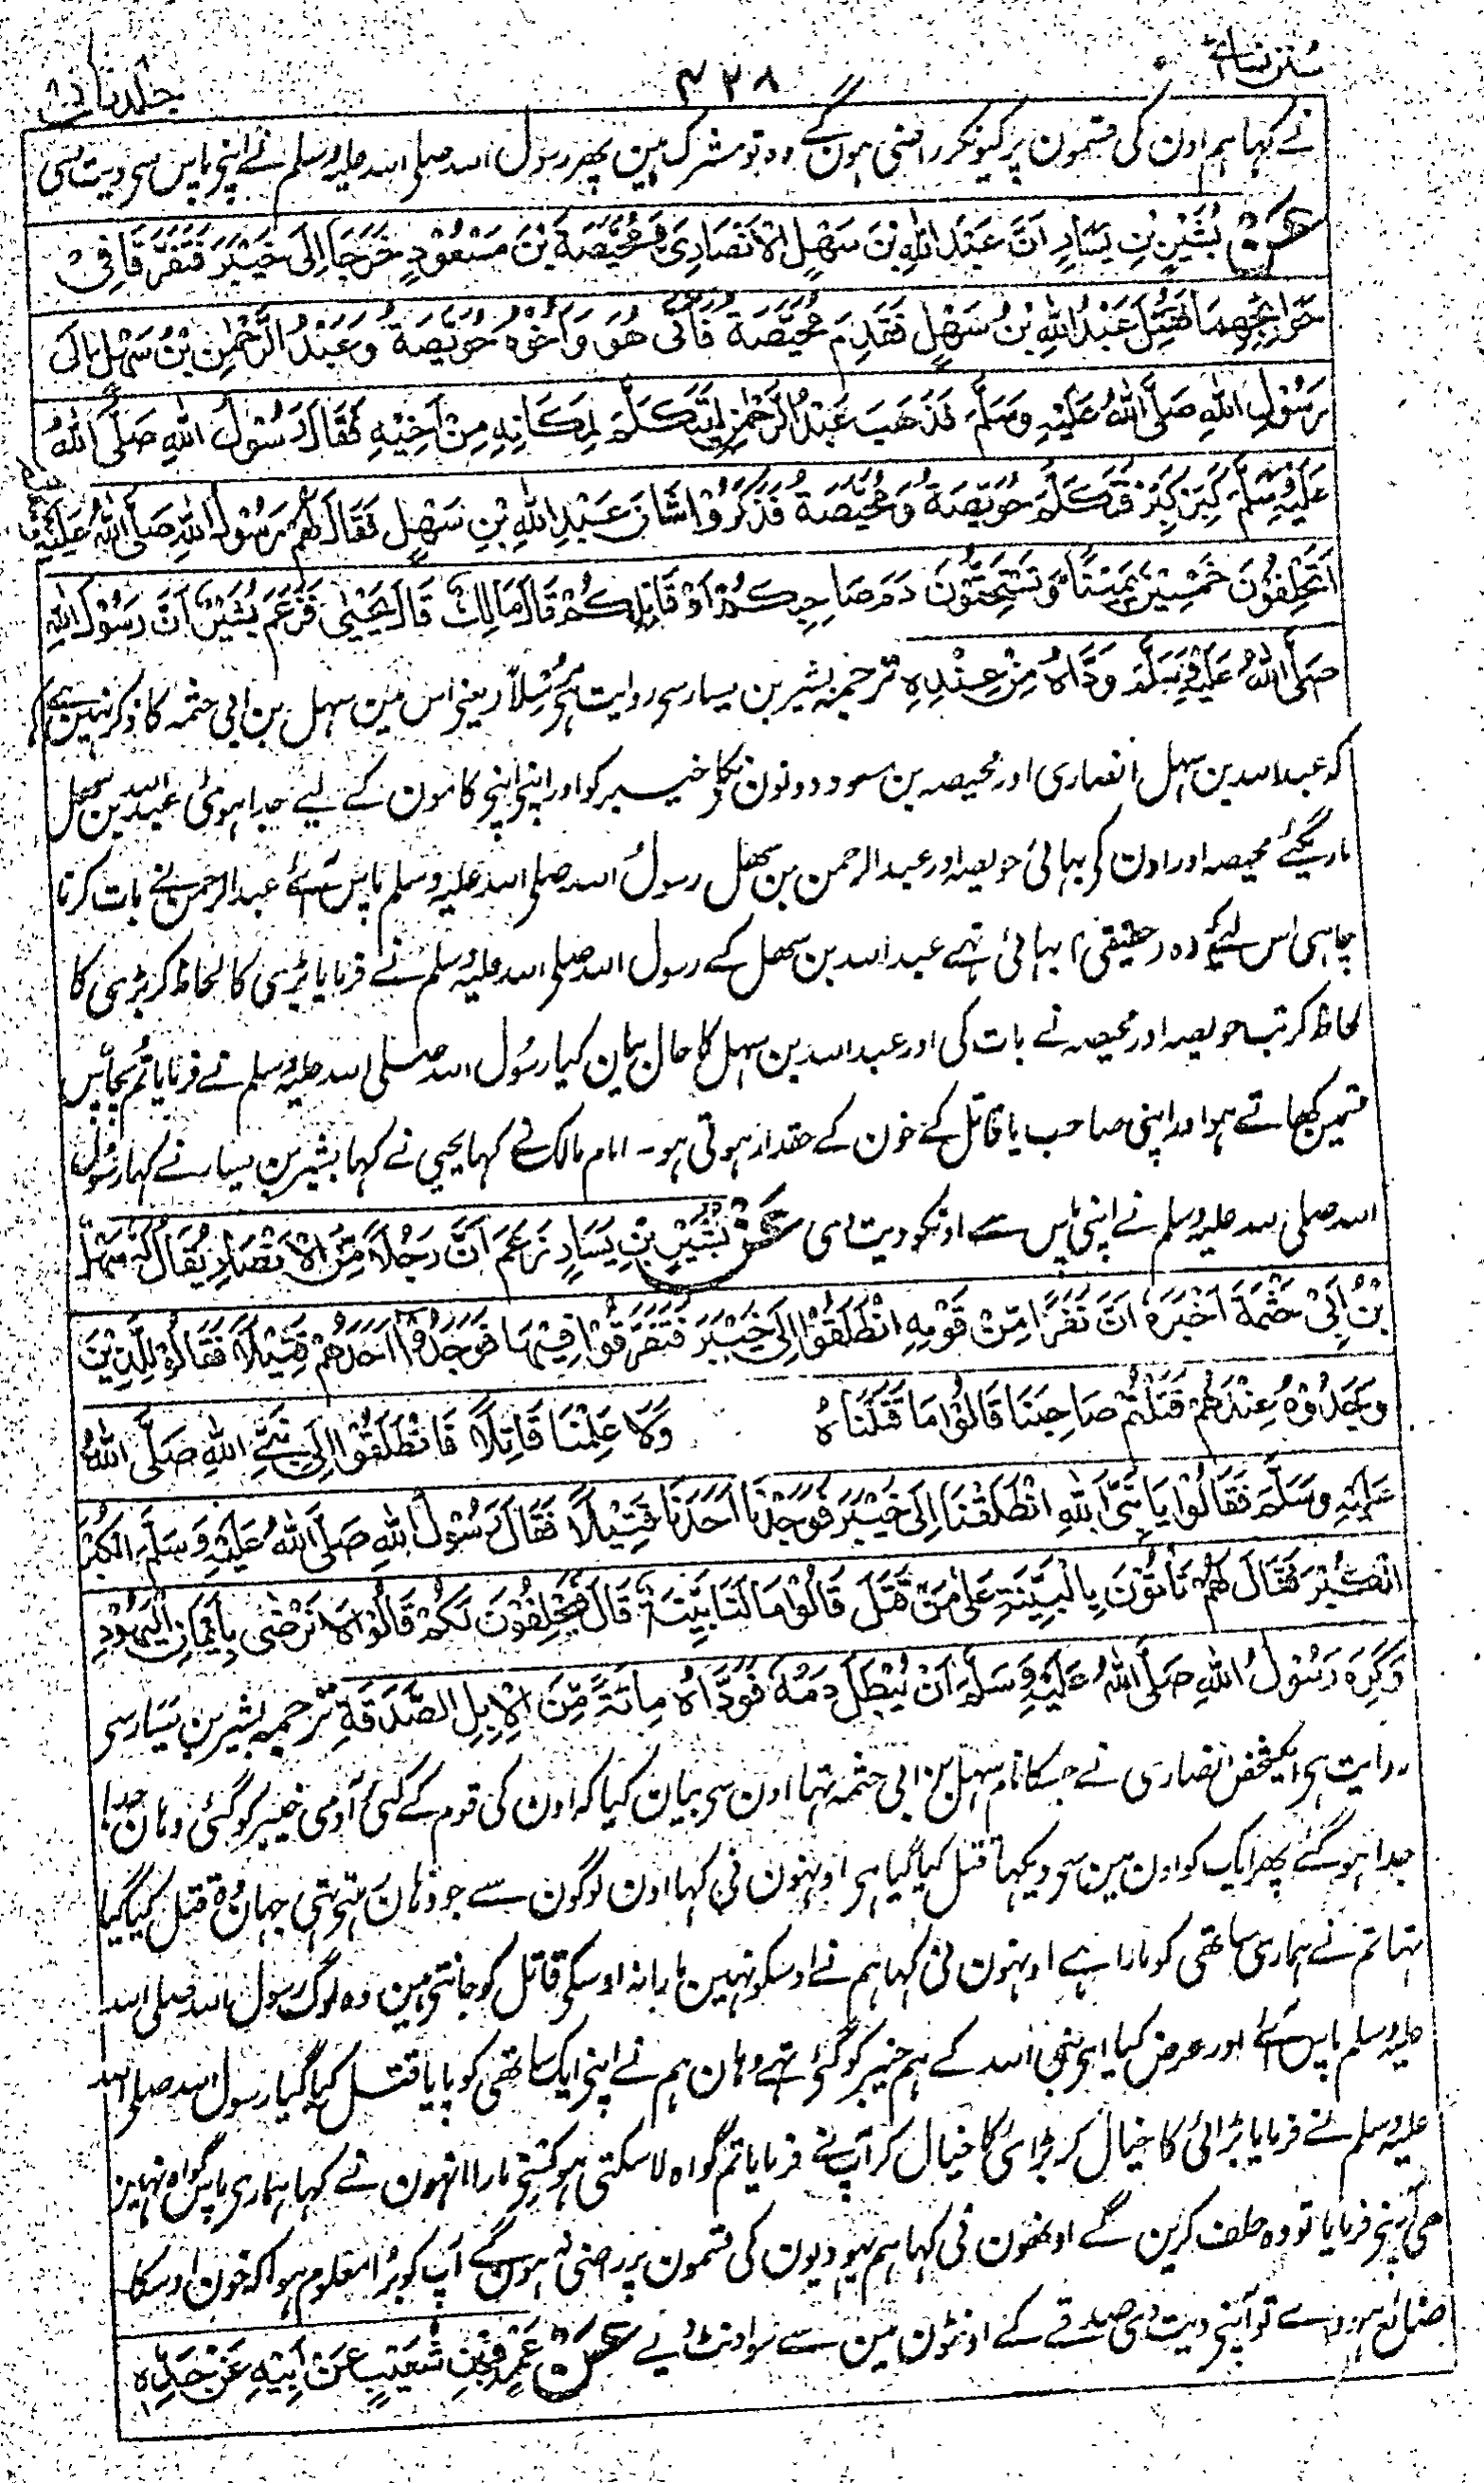 سنن نسائی ۴۲۸ جلد ثانی
نے کہا ہم اون کی قسمون پر کیونکر راضی ہون گے وہ تو مشرک ہین پھر رسول اللہ صلی اللہ علیہ وسلم نے اپنے پاس سی دیت دی
عَنْ بُشَيْرِ بْنِ يَسَارٍ اَنَّ عَبْدَ اللّٰهِ بْنَ سَهْلٍ الْاَنْصَارِیَّ وَمُحَيِّصَةَ بْنَ مَسْعُوْدٍ خَرَجَا اِلٰی خَيْبَرَ فَتَفَرَّقَا فِیْ
حَوَائِجِهِمَا فَقُتِلَ عَبْدُ اللّٰهِ بْنُ سَهْلٍ فَقَدِمَ مُحَيِّصَةُ فَاَتٰی هُوَ وَاَخُوْهُ حُوَيِّصَةُ وَعَبْدُ الرَّحْمٰنِ بْنُ سَهْلٍ اِلٰی
رَسُوْلِ اللّٰهِ صَلَّی اللّٰهُ عَلَيْهِ وَسَلَّمَ فَذَهَبَ عَبْدُ الرَّحْمٰنِ لِيَتَكَلَّمَ لِمَكَانِهِ مِنْ اَخِيْهِ فَقَالَ رَسُوْلُ اللّٰهِ صَلَّی اللّٰهُ
عَلَيْهِ وَسَلَّمَ كَبِّرْ كَبِّرْ فَتَكَلَّمَ حُوَيِّصَةُ وَمُحَيِّصَةُ فَذَكَرُوْا شَاْنَ عَبْدِ اللّٰهِ بْنِ سَهْلٍ فَقَالَ لَهُمْ رَسُوْلُ اللّٰهِ صَلَّی اللّٰهُ عَلَيْهِ وسلم
اَتَحْلِفُوْنَ خَمْسِيْنَ يَمِيْنًا وَّتَسْتَحِقُّوْنَ دَمَ صَاحِبِكُمْ اَوْ قَاتِلِكُمْ قَالَ مَالِكٌ قَالَ يَحْيٰی فَزَعَمَ بُشَيْرٌ اَنَّ رَسُوْلَ اللّٰهِ
صَلَّی اللّٰهُ عَلَيْهِ وَسَلَّمَ وَدَّاهُ مِنْ عِنْدِهِ ترجمہ بشیر بن یسار سی روایت ہی مرسلًا (یعنی اس مین سہل بن ابی حثمہ کا ذکر نہین ہے)
کہ عبداللہ بن سہل انصاری اور محیصہ بن مسعود دونون نکلے خیبر کو اور اپنی اپنی کامون کے لیے جدا ہوئی عبداللہ بن سھل
مار یگئے محیصہ اور اون کی بہائی حویصہ اور عبدالرحمن بن سھل رسول اللہ صلی اللہ علیہ وسلم پاس آئے عبدالرحمن نے بات کرنا
چاہی اس لیے وہ (حقیقی) بہائی تہے عبداللہ بن سھل کے رسول اللہ صلی اللہ علیہ وسلم نے فرمایا بڑی کا لحاظ کر بڑی کا
لحاظ کر تب حویصہ اور محیصہ نے بات کی اور عبداللہ بن سہل کا حال بیان کیا رسول اللہ صلی اللہ علیہ وسلم نے فرمایا تم پچاس
قسمین کھاتے ہو اور اپنی صاحب یا قاتل کے خون کے حقدار ہوتی ہو۔ امام مالک نے کہا یحیی نے کہا بشیر بن یسار نے کہا رسول
اللہ صلی اللہ علیہ وسلم نے اپنی پاس سے اونکو دیت دی عَنْ بُشَيْرِ بْنِ يَسَارٍ زَعَمَ اَنَّ رَجُلًا مِّنَ الْاَنْصَارِ يُقَالُ لَهُ سَهْلُ
بْنُ اَبِیْ حَثْمَةَ اَخْبَرَهُ اَنَّ نَفَرًا مِّنْ قَوْمِهِ انْطَلَقُوْا اِلٰی خَيْبَرَ فَتَفَرَّقُوْا فِيْهَا فَوَجَدُوْا اَحَدَهُمْ قَتِيْلًا فَقَالُوْا لِلَّذِيْنَ
وَجَدُوْهُ عِنْدَهُمْ قَتَلْتُمْ صَاحِبَنَا قَالُوْا مَا قَتَلْنَاهُ وَلَا عَلِمْنَا قَاتِلًا فَانْطَلَقُوْا اِلٰی نَبِیِّ اللّٰهِ صَلَّی اللّٰهُ
عَلَيْهِ وَسَلَّمَ فَقَالُوْا يَا نَبِیَّ اللّٰهِ انْطَلَقْنَا اِلٰی خَيْبَرَ فَوَجَدْنَا اَحَدَنَا قَتِيْلًا فَقَالَ رَسُوْلُ اللّٰهِ صَلَّی اللّٰهُ عَلَيْهِ وَسَلَّمَ الْكُبْرَ
الْكُبْرَ فَقَالَ لَهُمْ تَاْتُوْنَ بِالْبَيِّنَةِ عَلٰی مَنْ قَتَلَ قَالُوْا مَا لَنَا بَيِّنَةٌ قَالَ فَيَحْلِفُوْنَ لَكُمْ قَالُوْا لَا نَرْضٰی بِاَيْمَانِ الْيَهُوْدِ
وَكَرِهَ رَسُوْلُ اللّٰهِ صَلَّی اللّٰهُ عَلَيْهِ وَسَلَّمَ اَنْ يُّبْطَلَ دَمُهُ فَوَدَّاهُ مِائَةً مِّنَ الْاِبِلِ الصَّدَقَةِ ترجمہ بشیر بن یسار سی
روایت ہی ایکشخص انصاری نے جسکا نام سہل بن ابی حثمہ تہا اون سی بیان کیا کہ اون کی قوم کے کئی آدمی خیبر کو گئی وہان جدا
جدا ہو گئے پھر ایک کو اون مین سی دیکہا قتل کیا گیا ہی اونہون نی کہا اون لوگون سے جو وہان تہی جہان وہ قتل کیا گیا
تہا تم نے ہماری ساتھی کو مارا ہے اونہون نی کہا ہم نے اوسکو نہین مارا نہ اوسکی قاتل کو جانتی ہین وہ لوگ رسول اللہ صلی اللہ
علیہ وسلم پاس آئے اور عرض کیا ای نبی اللہ کے ہم خیبر کو گئی تہے وہان ہم نے اپنی ایک ساتھی کو پایا قتل کیا گیا رسول اللہ صلی اللہ
علیہ وسلم نے فرمایا بڑائی کا خیال کر بڑائی کا خیال کر آپ نے فرمایا تم گواہ لا سکتی ہو کسنی مارا انہون نے کہا ہماری پاس گواہ نہین
ھی آپنی فرمایا تو وہ حلف کرین گے اونھون نی کہا ہم یہودیون کی قسمون پر راضی نہ ہون گے آپ کو برا معلوم ہوا کہ خون اوسکا
ضائع ہووے تو آپنی دیت دی صدقے کے اونٹون مین سے سو اونٹ دیے عَنْ عَمْرِو بْنِ شُعَيْبٍ عَنْ اَبِيْهِ عَنْ جَدِّهِ